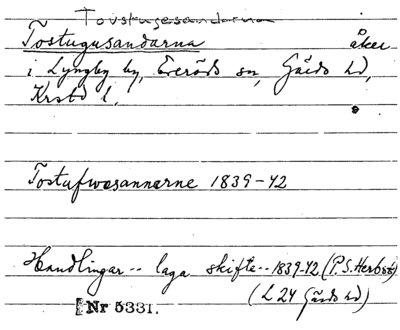 Tovstugesandarna
Tostugusandarna åker
i Lyngby by, Everöds sn, Gärds hd,
Krstd l.
Tostufwosannarne 1839-42
Handlingar -- laga skifte -- 1839-42 (P. S. Herbst)
(L 24 Gärds hd)
Nr 5331.